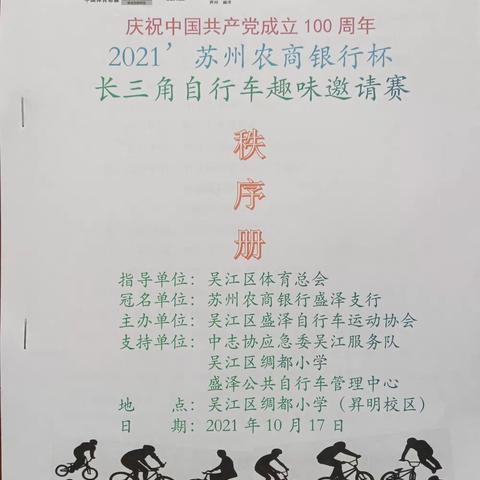 庆祝中国共产党成立 100 周年
2021’ 苏州农商银行杯
长三角自行车趣味邀请赛
秩
序
册
指导单位：吴江区体育总会
冠名单位：苏州农商银行盛泽支行
主办单位：吴江区盛泽自行车运动协会
支持单位：中志协应急委吴江服务队
吴江区绸都小学
盛泽公共自行车管理中心
地 点：吴江区绸都小学（昇明校区）
日 期：2021 年 10 月 17 日